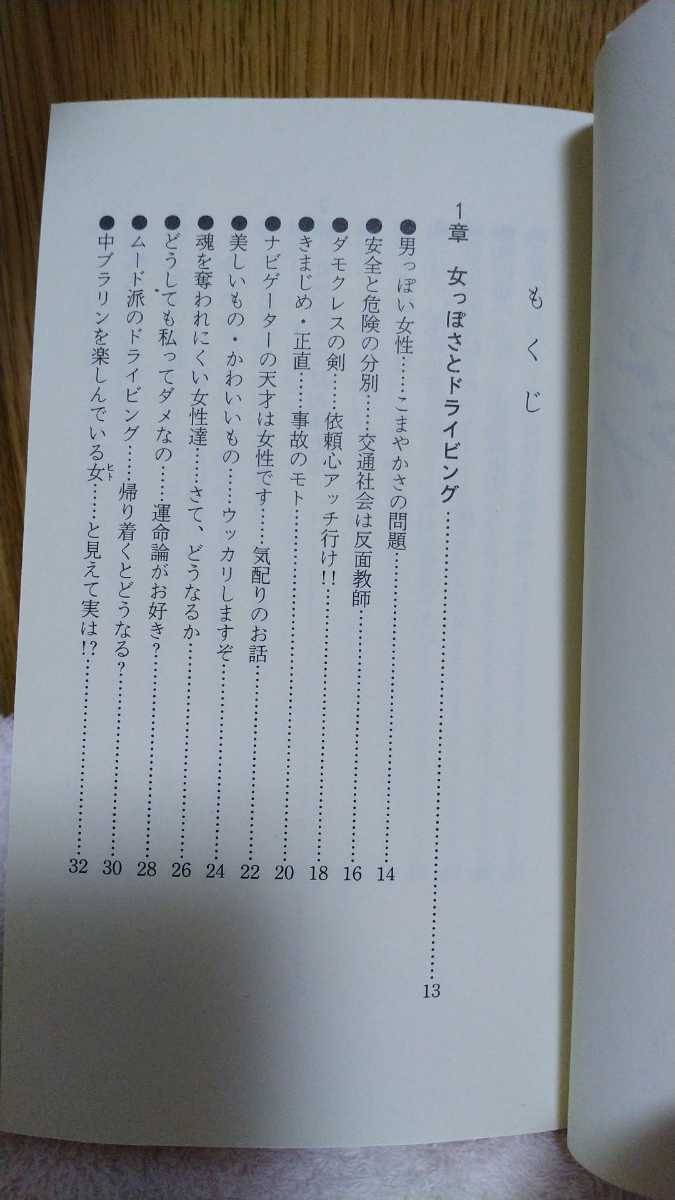 もくじ
1章 女っぽさとドライビング……………………13
●男っぽい女性……こまやかさの問題……………………14
●安全と危険の分別……交通社会は反面教師……………………16
●ダモクレスの剣……依頼心アッチ行け!!……………………18
●きまじめ・正直……事故のモト……………………20
●ナビゲーターの天才は女性です……気配りのお話……………………22
●美しいもの・かわいいもの……ウッカリしますぞ……………………24
●魂を奪われにくい女性達……さて、どうなるか……………………26
●どうしても私ってダメなの……運命論がお好き?……………………28
●ムード派のドライビング……帰り着くとどうなる?……………………30
●中ブラリンを楽しんでいる女ヒト……と見えて実は!?……………………32